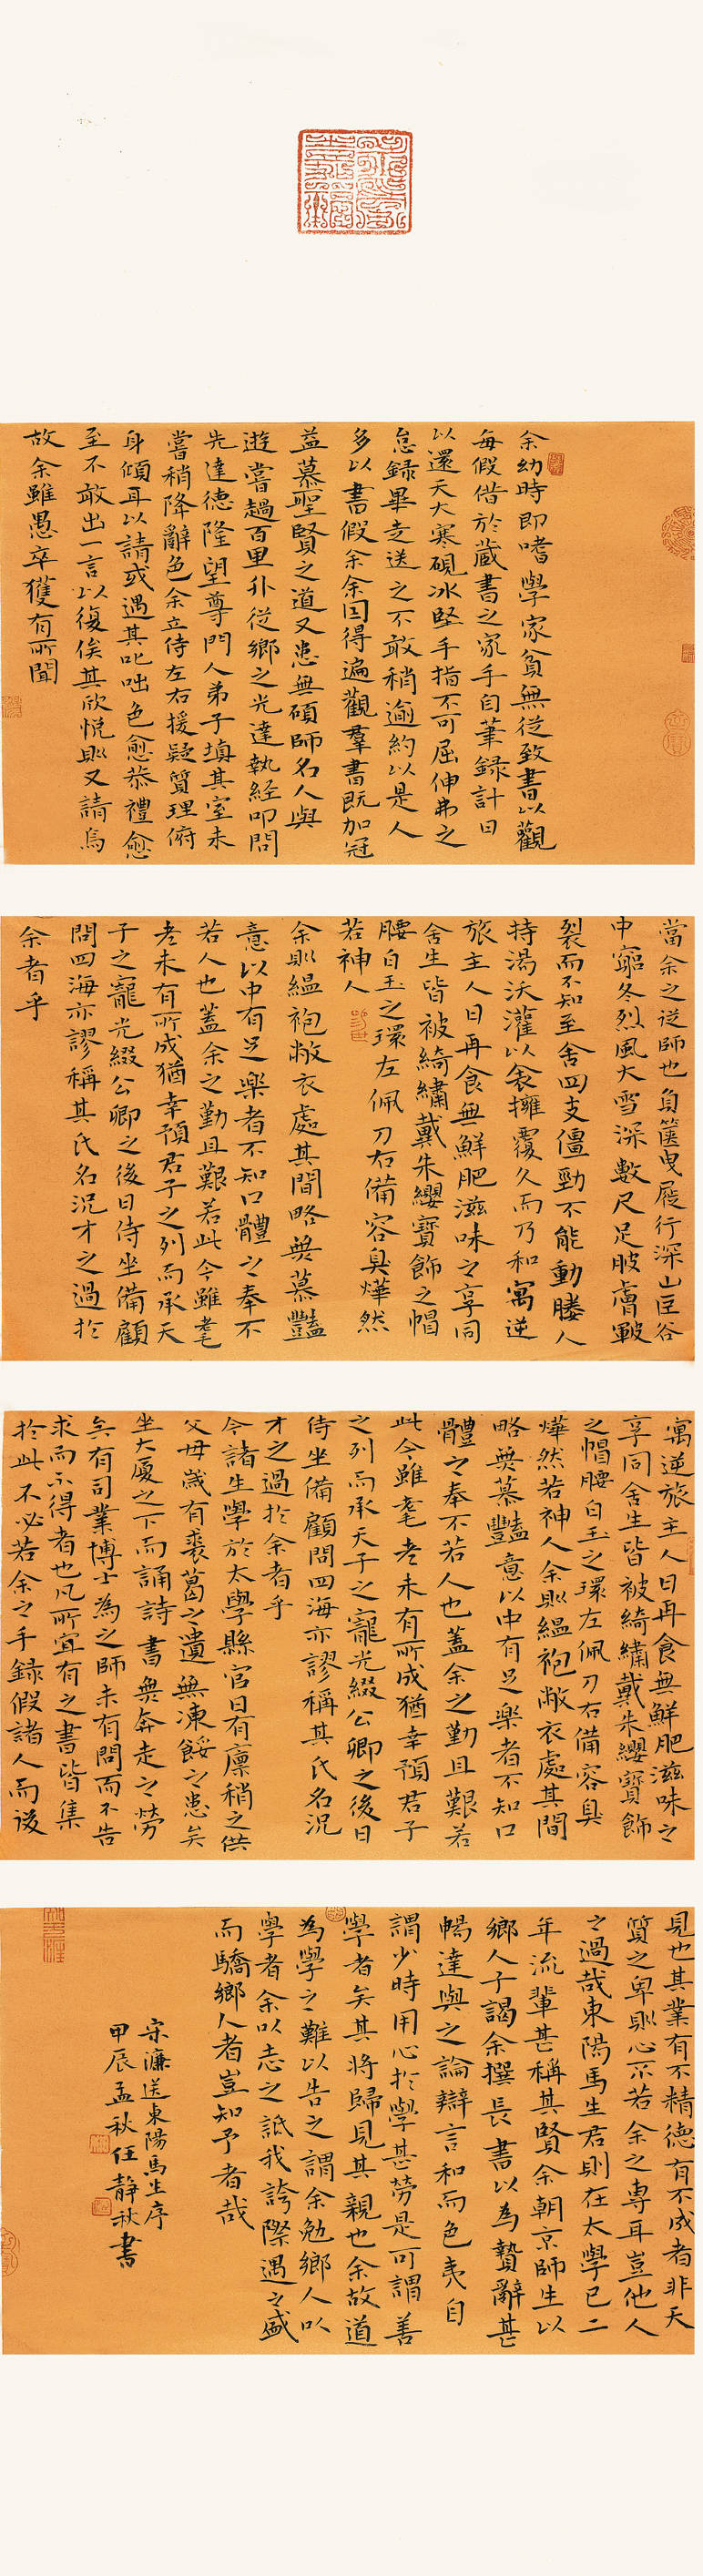 余幼時即嗜學家貧無從致書以觀
每假借於藏書之家手自筆録計日
以還天大寒硯冰堅手指不可屈伸弗之
怠録畢走送之不敢稍逾約以是人
多以書假余余因得遍觀羣書既加冠
益慕聖賢之道又患無碩師名人與
遊嘗趨百里外從鄉之先達執經叩問
先達德隆望尊門人弟子填其室未
嘗稍降辭色余立侍左右援疑質理俯
身傾耳以請或遇其叱咄色愈恭禮愈
至不敢出一言以復俟其欣悦則又請焉
故余雖愚卒獲有所聞
當余之從師也負篋曳屣行深山巨谷
中窮冬烈風大雪深數尺足膚皸
裂而不知至舍四支僵勁不能動媵人
持湯沃灌以衾擁覆久而乃和寓逆
旅主人日再食無鮮肥滋味之享同
舍生皆被綺繡戴朱纓寶飾之帽
腰白玉之環左佩刀右備容臭燁然
若神人
余則緼袍敝衣處其間略無慕豔
意以中有足樂者不知口體之奉不
若人也蓋余之勤且艱若此今雖耄
老未有所成猶幸預君子之列而承天
子之寵光綴公卿之後日侍坐備顧
問四海亦謬稱其氏名況才之過於
余者乎
寓逆旅主人日再食無鮮肥滋味之
享同舍生皆被綺繡戴朱纓寶飾
之帽腰白玉之環左佩刀右備容臭
燁然若神人余則緼袍敝衣處其間
略無慕豔意以中有足樂者不知口
體之奉不若人也蓋余之勤且艱若
此今雖耄老未有所成猶幸預君子
之列而承天子之寵光綴公卿之後日
侍坐備顧問四海亦謬稱其氏名況
才之過於余者乎
今諸生學於太學縣官日有廩稍之供
父母歲有裘葛之遺無凍餒之患矣
坐大廈之下而誦詩書無奔走之勞
矣有司業博士為之師未有問而不告
求而不得者也凡所宜有之書皆集
於此不必若余之手録假諸人而後
見也其業有不精德有不成者非天
質之卑則心不若余之專耳豈他人
之過哉東陽馬生君則在太學已二
年流輩甚稱其賢余朝京師生以
鄉人子謁余撰長書以為贄辭甚
暢達與之論辯言和而色夷自
謂少時用心於學甚勞是可謂善
學者矣其將歸見其親也余故道
為學之難以告之謂余勉鄉人以
學者余以志之詆我誇際遇之盛
而驕鄉人者豈知予者哉
宋濂送東陽馬生序
甲辰孟秋任靜秋書